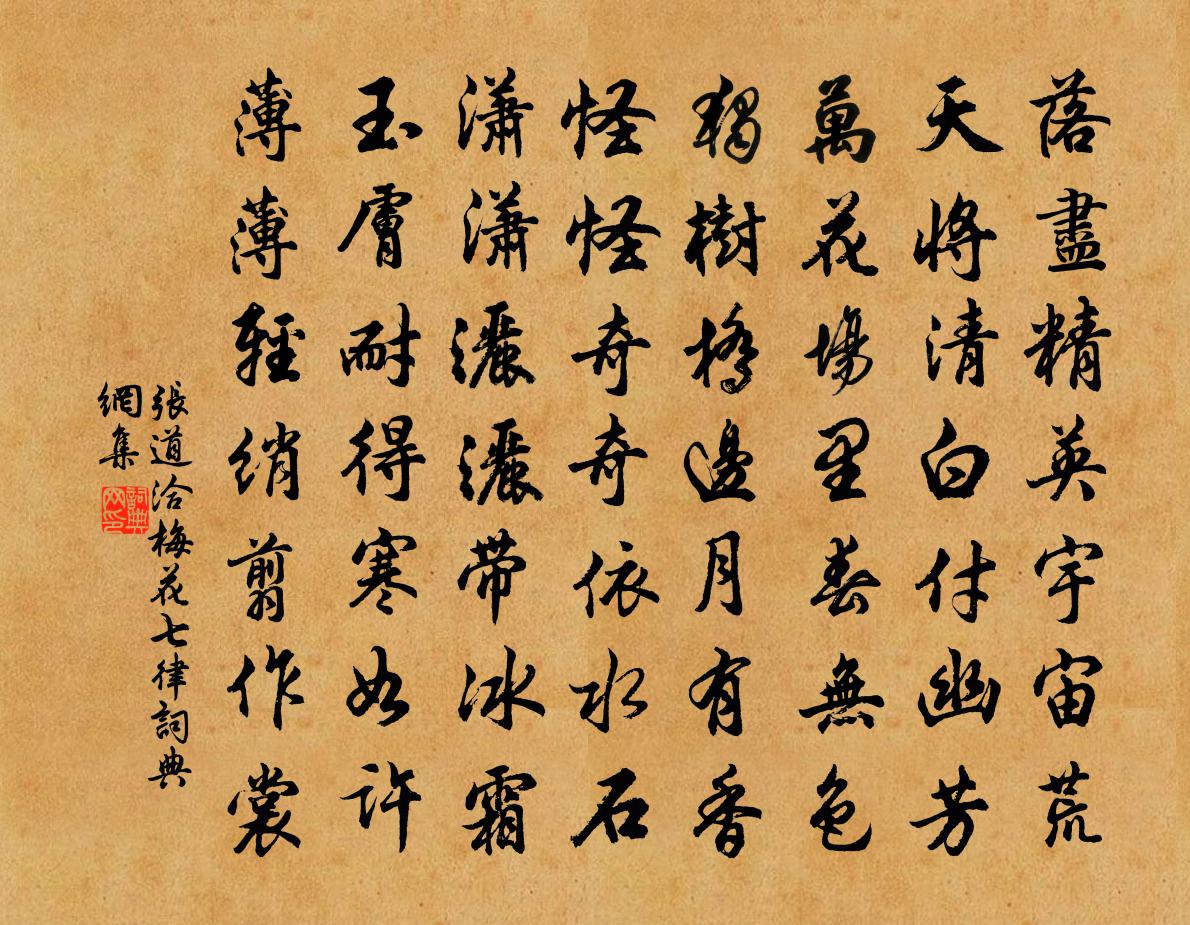 落盡精英宇宙荒
天將清白付幽芳
萬花場里春無色
獨樹橋邊月有香
怪怪奇奇依水石
瀟瀟灑灑帶冰霜
玉膚耐得寒如許
薄薄輕綃翦作裳
張道洽梅花七律詞典
網集
詞典
网印